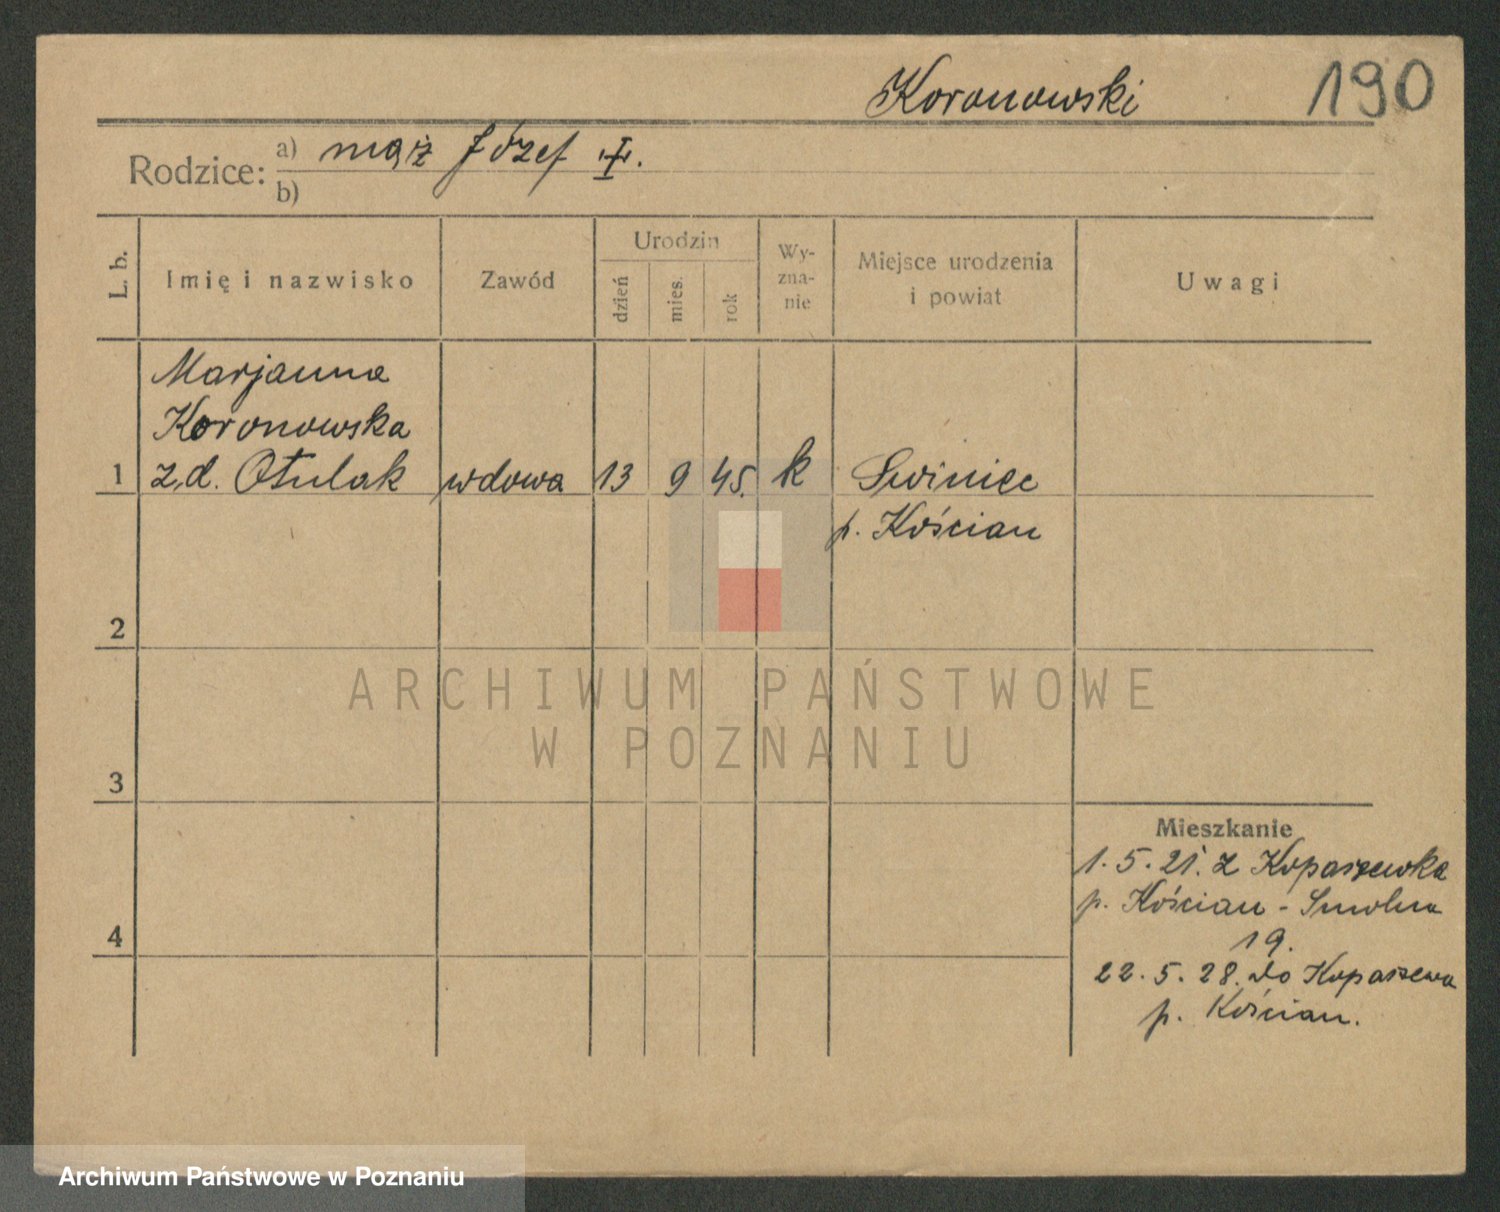 Koronowski 190
Rodzice: a) mąż Józef ✝.
b)
L. b.
Imię i nazwisko
Zawód
Urodzin
dzień
mies.
rok
Wy-
zna-
nie
Miejsce urodzenia
i powiat
Uwagi
Marjanna
Koronowska
1 z.d. Otulak wdowa 13 9 45. k Swiniec
p. Kościan
2
3
4
Mieszkanie
1.5.21. z Kopaszewka
p. Kościan - Smolna
19.
22.5.28. do Kopaszewa
p. Kościan.
ARCHIWUM PAŃSTWOWE
W POZNANIU
Archiwum Państwowe w Poznaniu